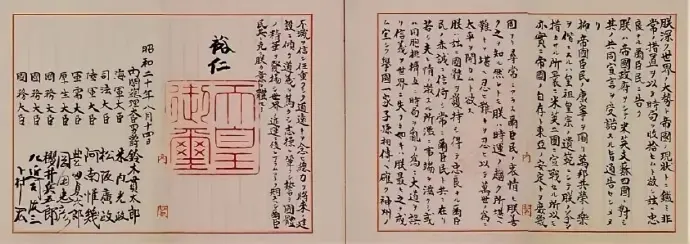 朕深ク世界ノ大勢ト帝國ノ現狀トニ鑑ミ非
常ノ措置ヲ以テ時局ヲ收拾セムト欲シ茲ニ忠
良ナル爾臣民ニ告ク
朕ハ帝國政府ヲシテ米英支蘇四國ニ對シ
其ノ共同宣言ヲ受諾スル旨通告セシメタリ
抑〻帝國臣民ノ康寧ヲ圖リ萬邦共榮ノ樂
ヲ偕ニスルハ皇祖皇宗ノ遺範ニシテ朕ノ拳々
措カサル所曩ニ米英二國ニ宣戰セル所以モ
亦實ニ帝國ノ自存ト東亞ノ安定トヲ庶幾
内閣
固ヨリ尋常ニアラス爾臣民ノ衷情モ朕善
ク之ヲ知ル然レトモ朕ハ時運ノ趨ク所堪ヘ
難キヲ堪ヘ忍ヒ難キヲ忍ヒ以テ萬世ノ爲ニ
太平ヲ開カムト欲ス
朕ハ茲ニ國體ヲ護持シ得テ忠良ナル爾臣
民ノ赤誠ニ信倚シ常ニ爾臣民ト共ニ在リ
若シ夫レ情ノ激スル所濫ニ事端ヲ滋クシ或
ハ同胞排擠互ニ時局ヲ亂リ爲ニ大道ヲ誤
リ信義ヲ世界ニ失フカ如キハ朕最モ之ヲ戒
ム宜シク擧國一家子孫相傳ヘ確ク神州ノ
不滅ヲ信シ任重クシテ道遠キヲ念ヒ總力ヲ將來ノ建
設ニ傾ケ道義ヲ篤クシ志操ヲ鞏クシ誓テ國體
ノ精華ヲ發揚シ世界ノ進運ニ後レサラムコトヲ期スヘシ爾臣
民其レ克ク朕カ意ヲ體セヨ
裕仁
天皇御璽
内閣
昭和二十年八月十四日
内閣總理大臣男爵 鈴木貫太郎
海軍大臣 米内光政
司法大臣 松阪廣政
陸軍大臣 阿南惟幾
軍需大臣 豊田貞次郎
厚生大臣 岡田忠彦
國務大臣 櫻井兵五郎
國務大臣 左近司政三
國務大臣 下村宏